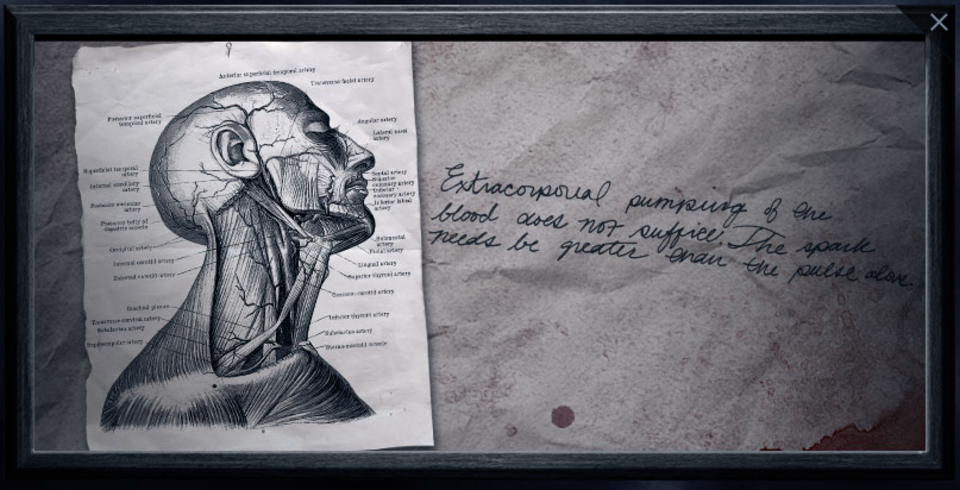 Anterior superficial temporal artery
Transverse facial artery
Posterior superficial
temporal artery
Angular artery
Lateral nasal
artery
Superficial temporal
artery
Internal maxillary
artery
Septal artery
Superior
coronary artery
Inferior
coronary artery
Inferior labial
artery
Posterior auricular
artery
Posterior belly of
digastric muscle
Occipital artery
Submental
artery
Facial artery
Internal carotid artery
Lingual artery
External carotid artery
Superior thyroid artery
Common carotid artery
Brachial plexus
Transverse cervical artery
Subclavian artery
Suprascapular artery
Inferior thyroid artery
Subclavian artery
Sterno-mastoid muscle
Extracorporial pumping of the
blood does not suffice. The spark
needs be greater than the pulse alone.